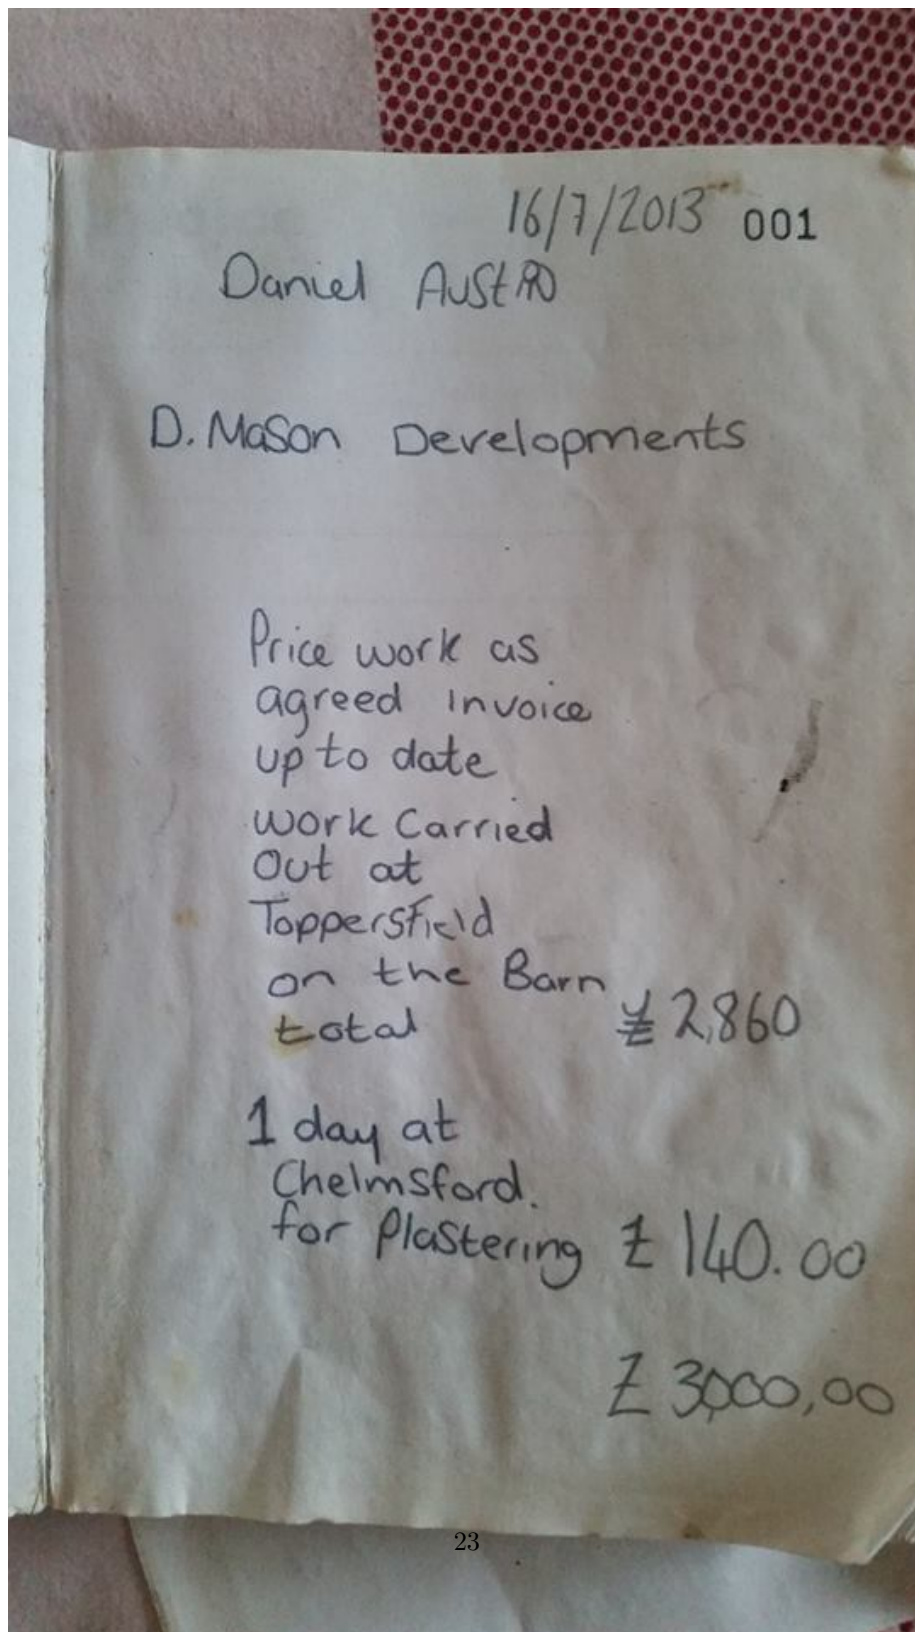 16/7/2013 001
Daniel Austin
D. Mason Developments
Price work as
agreed invoice
up to date
work Carried
Out at
Toppersfield
on the Barn
total £2,860
1 day at
Chelmsford.
for Plastering £140.00
£3,000,00
23